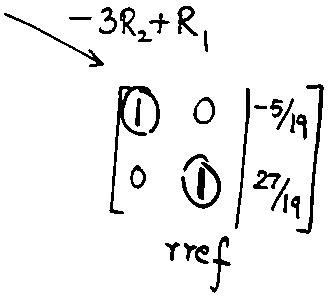 -3R₂+R₁
[1 0 | -5/19]
[0 1 | 27/19]
rref